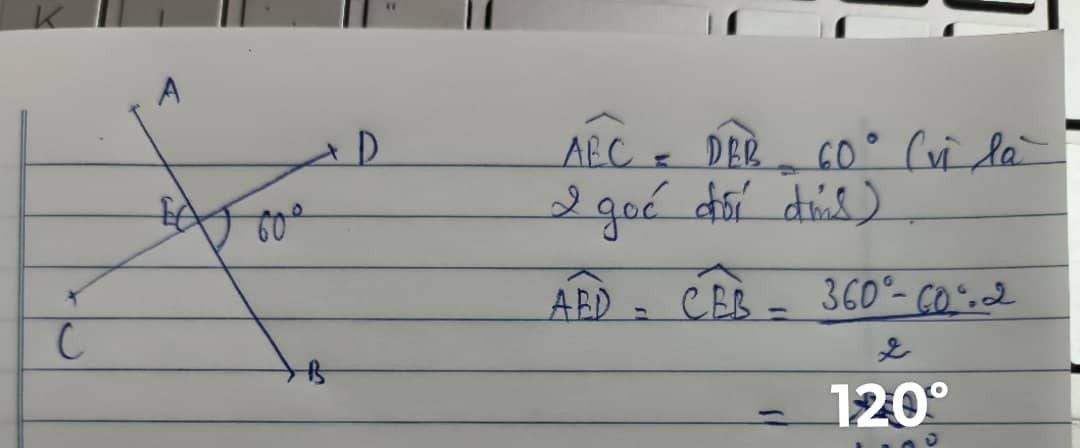 K
"
A
D
E
60°
C
B
AEC = DEB = 60° (vì là
2 góc đối đỉnh)
AED = CEB = 360° - 60°.2
2
= 120°